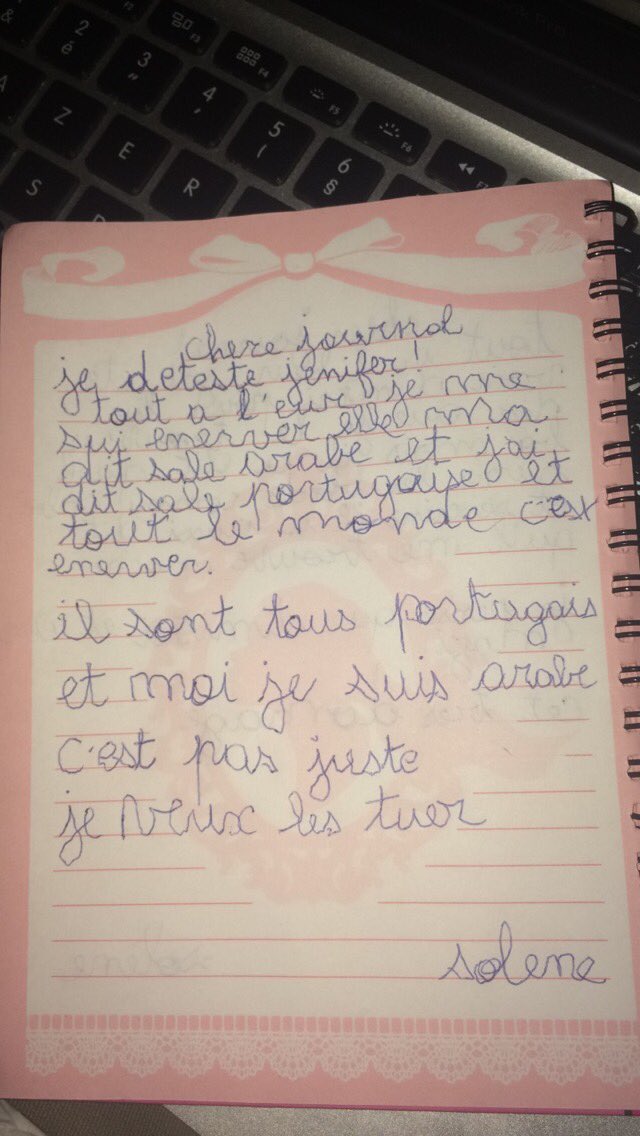 & 2 é 3 " 4 ' 5 ( 6 §
F3 F4 F5 F6 F7
A Z E R
S D
chere journal
je deteste jenifer!
tout a l'eur je me
sui enerver elle ma
dit sale arabe et j'ai
dit sale portugaise et
tout le monde c'est
enerver.
il sont tous portugais
et moi je suis arabe
c'est pas juste
je veux les tuer
solene